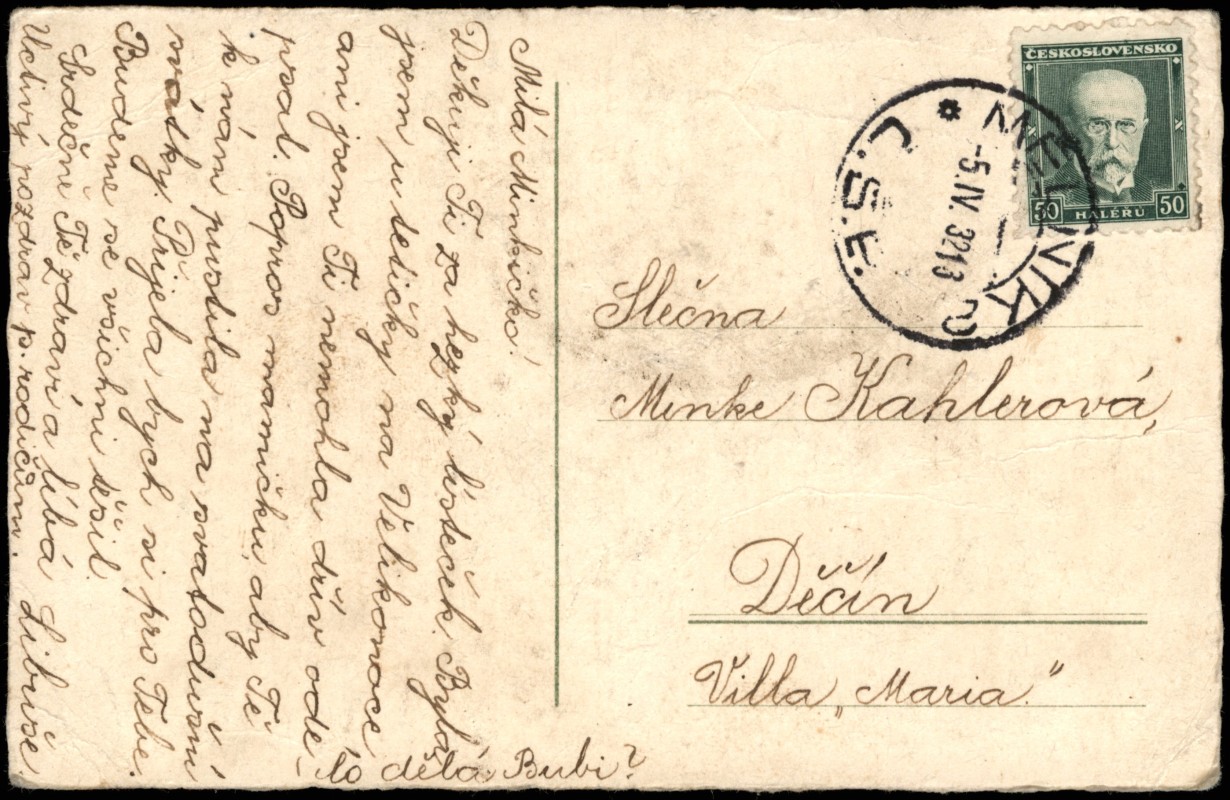 Milá Minkičko!
Děkuji Ti za hezký lísteček. Byla
jsem u tetičky na Velikonoce
ani jsem Ti nemohla dřív ode-
psat. Popros mamičku, aby Tě
k nám pustila na svatodušní
svátky. Přijela bych si pro Tebe.
Budeme se všichni těšit.
Srdečně Tě zdraví a líbá Libuše
Uctivý pozdrav p. rodičům.
Co dělá Bubi?
ČESKOSLOVENSKO
50 HALÉŘŮ 50
MĚLNÍK 2
-5.IV.32 18
Č.S.R.
Slečna
Minke Kahlerová,
Děčín
Villa „Maria“